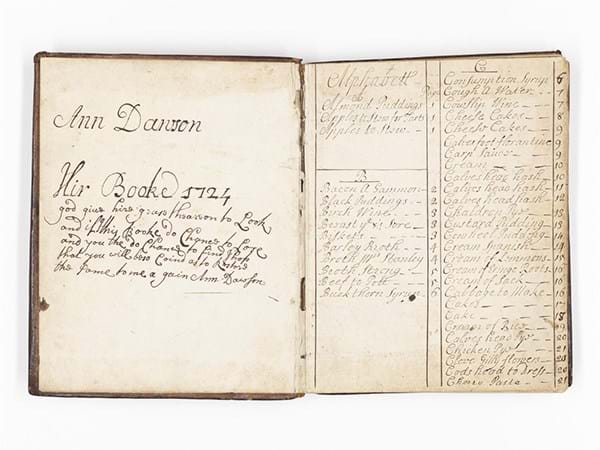 Ann Dawson
Hir Booke 1724
god give hire grase thearon to Look
and if this Booke do Chance to Lose
and you the do Chance to find
that you will be so Coind as to Restore
the Same to me a gain Ann Dawson
Alphabett
A
Almond Puddings 1
Apples to Stow for Tarts 1
Apples to Stow 1
B
Bacon a Gammon 2
Black Puddings 2
Birch Wine 3
3
3
Barley Broth 4
Broth Mrs Stanley 4
Broth Strong 5
Beef to Pott 5
Buckthorn Syrupe 6
C
Consumption Syrup 6
Cough A Water 7
Cowslip Wine 7
Cheese Cakes 8
Cheese Cakes 9
Calves foot florantine 9
Carp Sauce 9
Cream 10
Calves head hash 10
Calves head hash 11
Calves head hash 12
13
Custard Pudding 13
13
Cream Spanish 14
Cream of Lemmons 15
Cream of Ringo Roots 15
Cream of Sack 16
Cabbage to Make 16
Cakes 17
Cake 18
Cream of Rice 19
Calves head Pye 20
Chicken Pye 21
Clove Gilly flowers 20
Cods head to dress 20
Paste 21